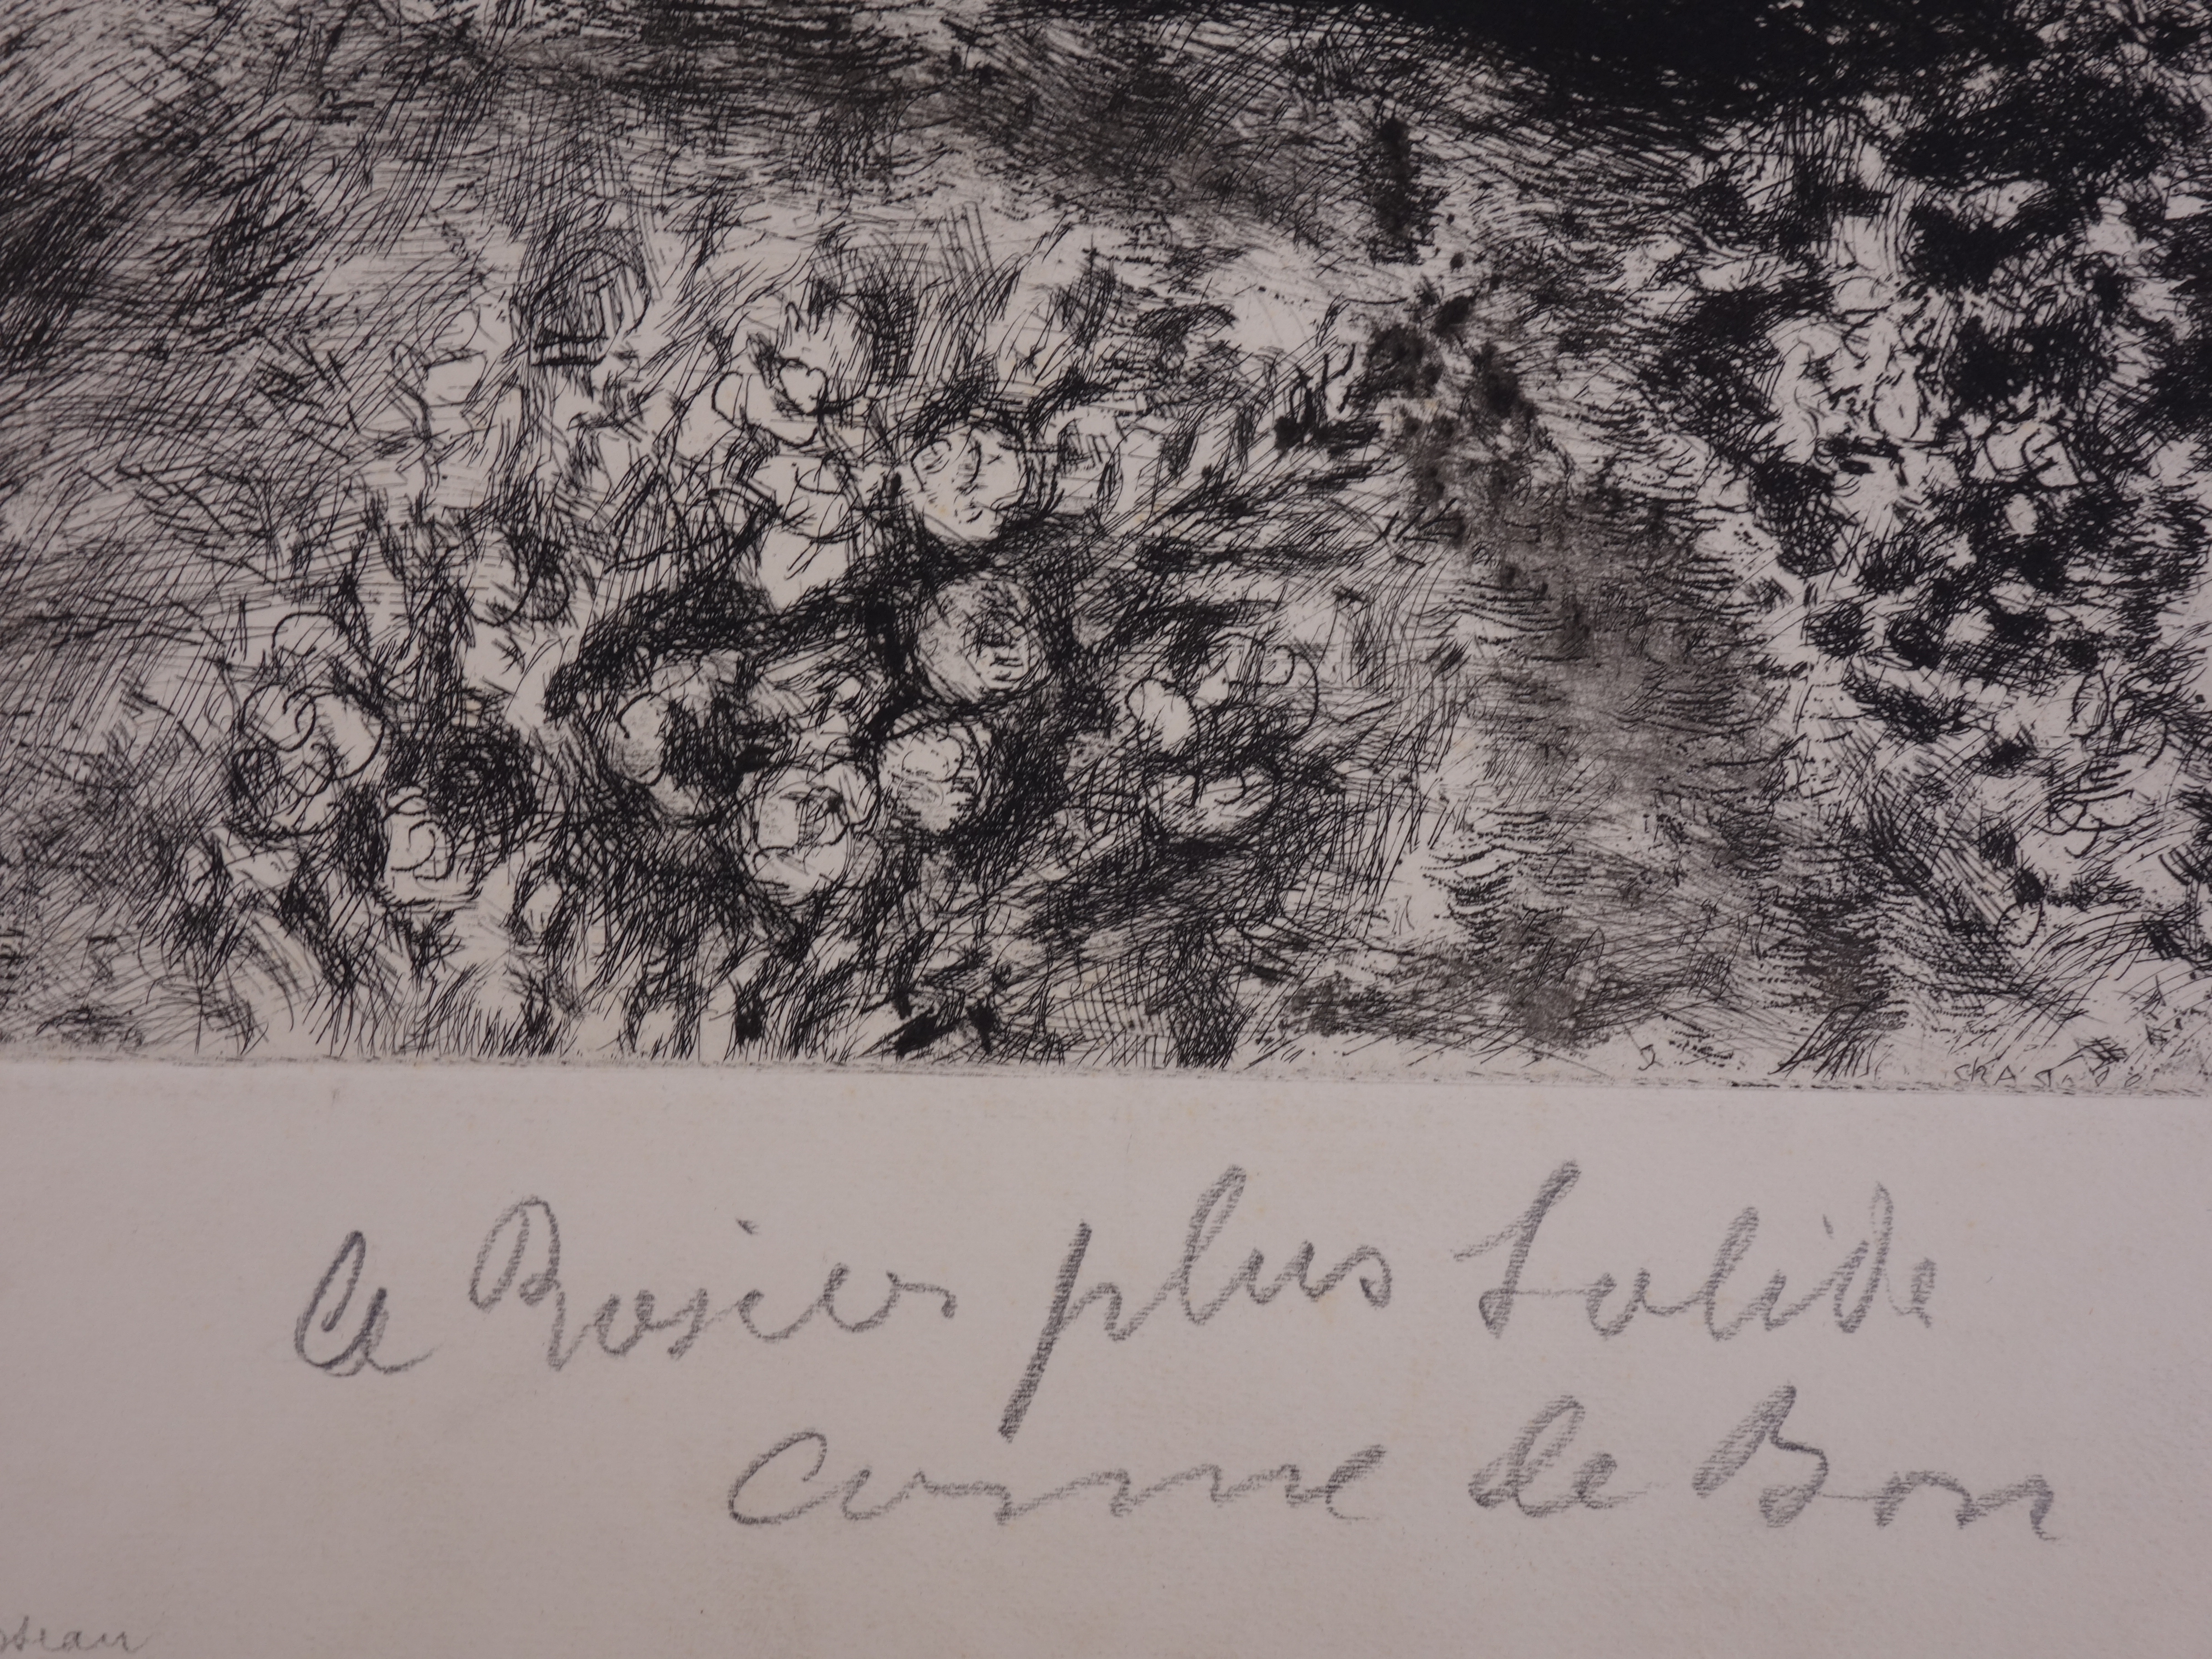 le Rosier plus Solide
comme de Bon